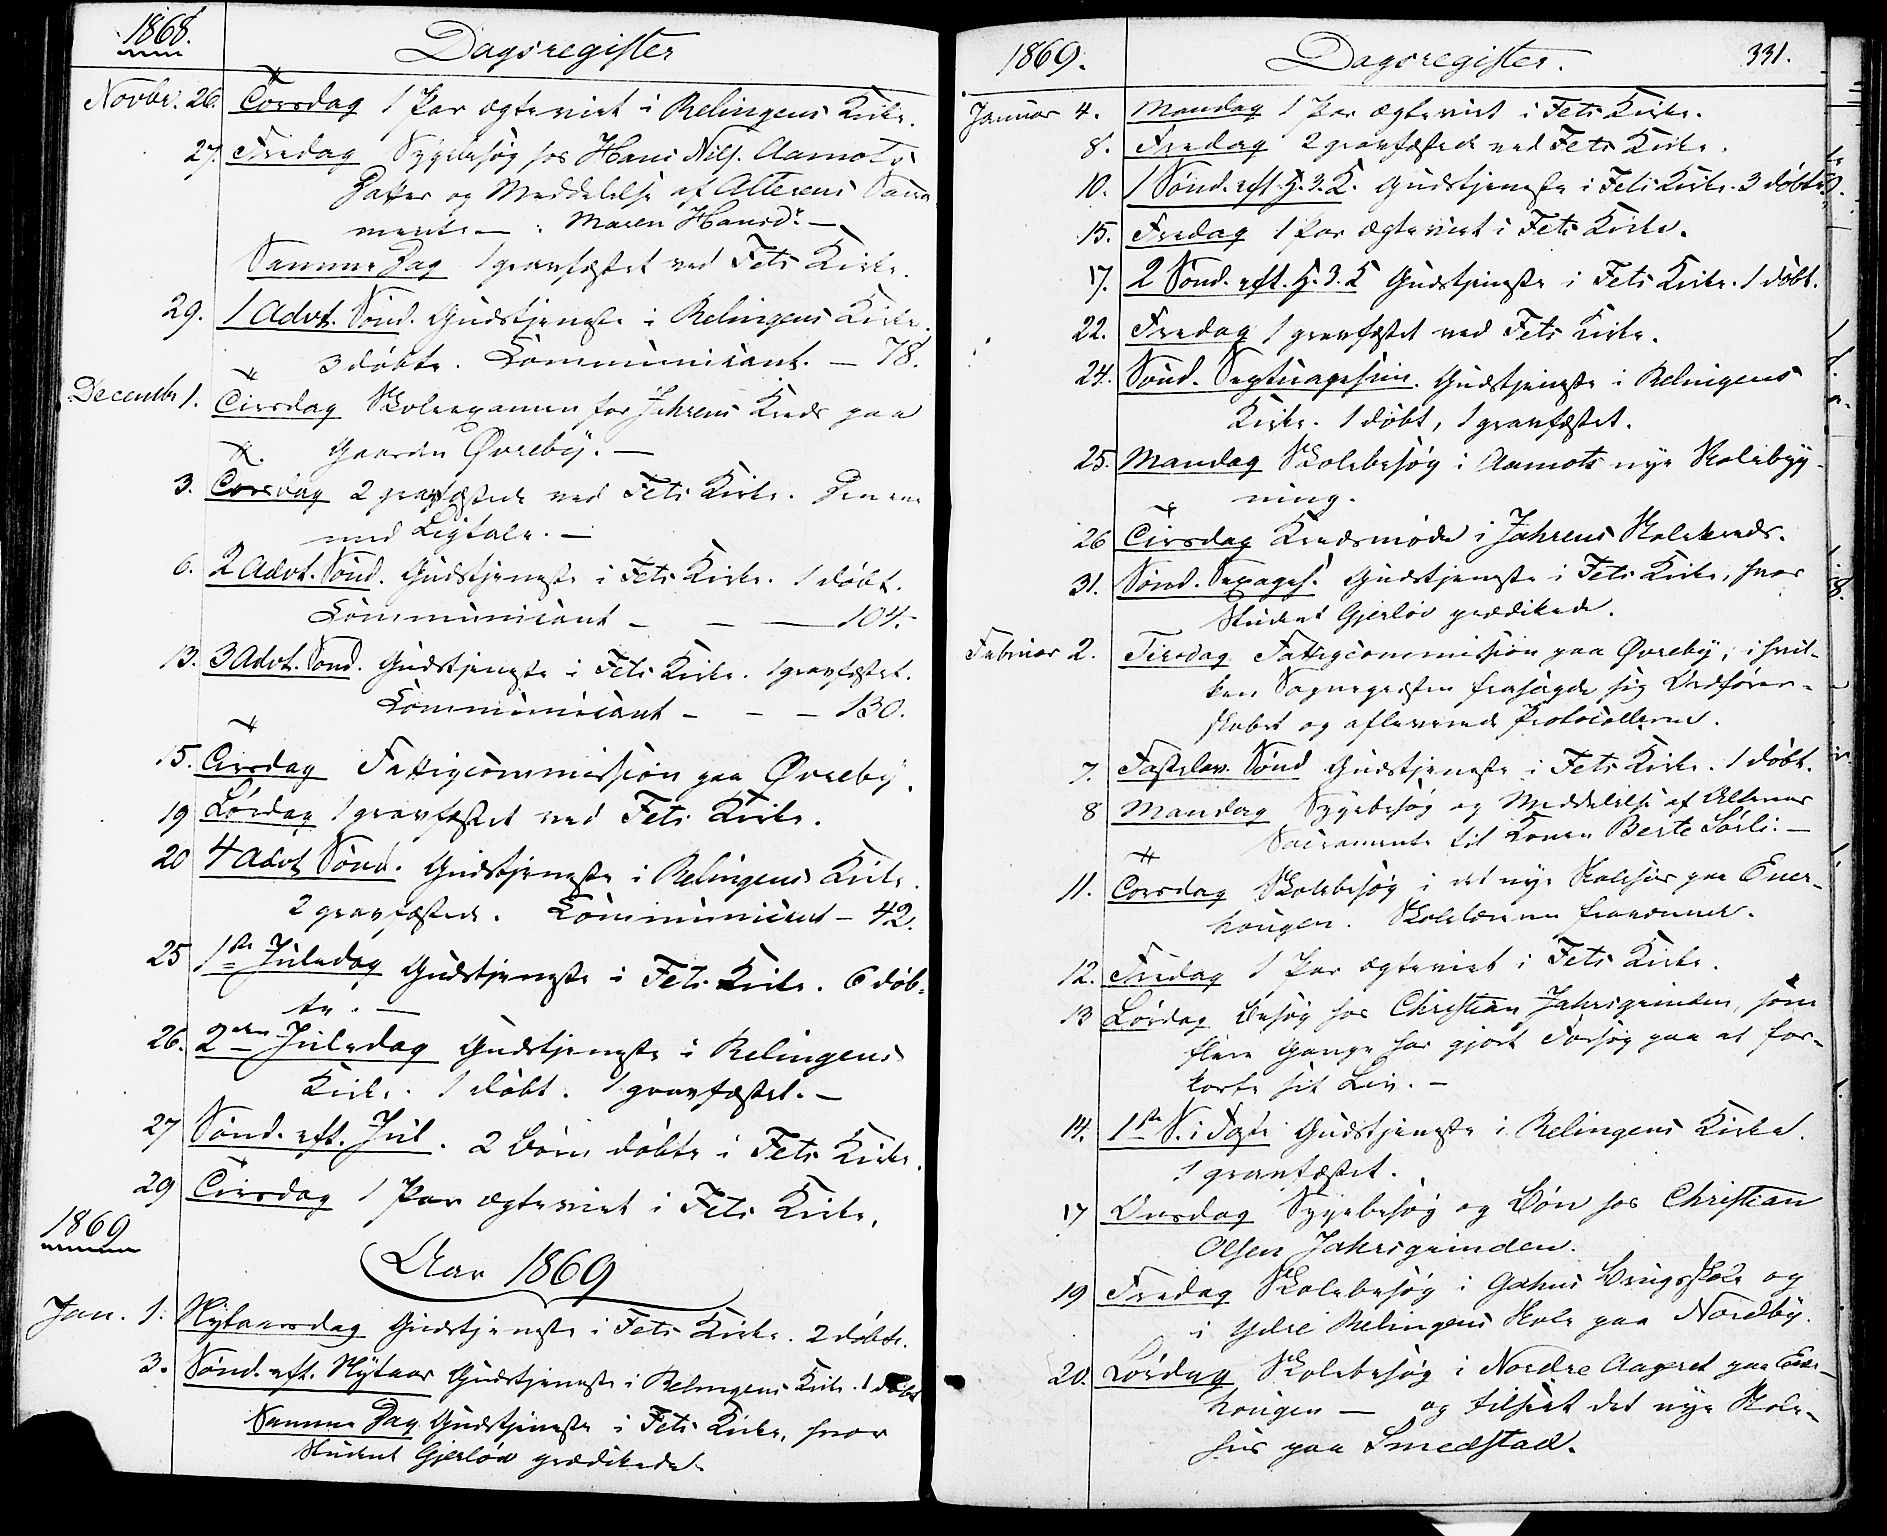 1868.
Dagsregister
Novbr. 26. Torsdag 1 Par ægteviet i Relingens Kirke.
27. Fredag Sygebesøg hos Hans Nils. Aamots
Datter og Meddelelse af Alterens Sacra
mente — : Maren Hansdr. —
Samme Dag 1 gravfæstet ved Fets Kirke.
29. 1 Advt. Sønd. Gudstjeneste i Relingens Kirke.
3 døbte. Communicant. — 78.
Decembr 1. Tirsdag Skoleexamen for Jahrens Kreds paa
Gaarden Øvreby. —
3. Torsdag 2 gravfæstede ved Fets Kirke. Den ene
med Ligtale. —
6. 2 Advt. Sønd. Gudstjeneste i Fets Kirke. 1 døbt.
Communicant — — — 104.
13. 3 Advt. Sønd. Gudstjeneste i Fets Kirke. 1 gravfæstet.
Communicant — — — 130.
15. Tirsdag Fattigcommission paa Øvreby.
19 Lørdag 1 gravfæstet ved Fets Kirke.
20 4 Advt Sønd. Gudstjeneste i Relingens Kirke.
2 gravfæstede. Communicant — 42.
25 1ste Juledag Gudstjeneste i Fets Kirke. 6 døb-
te. —
26. 2den Juledag Gudstjeneste i Relingens
Kirke. 1 døbt. 1 gravfæstet. —
27 Sønd. eft. Jul. 2 Børn døbte i Fets Kirke.
29 Tirsdag 1 Par ægteviet i Fets Kirke.
1869
Aar 1869
Jan. 1. Nytaarsdag Gudstjeneste i Fets Kirke. 2 døbte.
3. Sønd. eft. Nytaar Gudstjeneste i Relingens Kirke. 1 døbt
Samme Dag Gudstjeneste i Fets Kirke, hvor
Student Gjerløv prædikede.
1869.
Dagsregister.
331.
Januar 4. Mandag 1 Par ægteviet i Fets Kirke.
8. Fredag 2 gravfæstede ved Fets Kirke.
10. 1 Sønd. eft. H. 3. K. Gudstjeneste i Fets Kirke. 3 døbte.
15. Fredag 1 Par ægteviet i Fets Kirke.
17. 2 Sønd. eft. H. 3. K Gudstjeneste i Fets Kirke. 1 døbt.
22. Fredag 1 gravfæstet ved Fets Kirke.
24. Sønd. Septuagesim. Gudstjeneste i Relingens
Kirke. 1 døbt, 1 gravfæstet.
25. Mandag Skolebesøg i Aamots nye Skolebyg-
ning.
26 Tirsdag Kredsmøde i Jahrens Skolekreds.
31. Sønd. Sexages. Gudstjeneste i Fets Kirke, hvor
Student Gjerløv prædikede.
Februar 2. Tirsdag Fattigcommission paa Øvreby, i hvil-
ken Sognepræsten frasagde sig Ordfører-
skabet og afleverede Protocollerne.
7. Fastelav. Sønd Gudstjeneste i Fets Kirke. 1 døbt.
8 Mandag Sygebesøg og Meddelelse af Alterens
Sacramente til Konen Berte Sørli. —
11. Torsdag Skolebesøg i det nye Skolehus paa Ener-
hougen. Skolelæreren fraværende.
12. Fredag 1 Par ægteviet i Fets Kirke.
13 Lørdag Besøg hos Christian Jahrsgrinden, som
flere Gange har gjort Forsøg paa at for-
korte sit Liv. —
14. 1ste S. i Faste Gudstjeneste i Relingens Kirke.
1 gravfæstet.
17 Onsdag Sygebesøg og Bøn hos Christian
Olsen Jahrsgrinden.
19 Fredag Skolebesøg i Gahns Brugsskole og
i Ydre Relingens Skole paa Nordby.
20. Lørdag Skolebesøg i Nordre Aageret paa Ener-
hougen — og tilseet det nye Skole-
hus paa Smedstad.